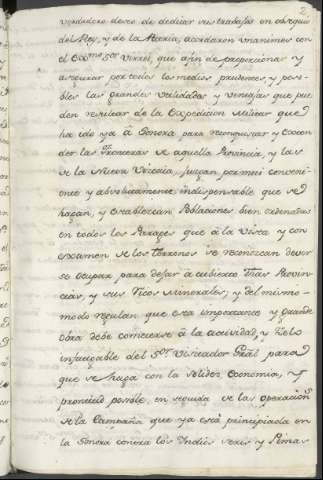 2
verdadero deseo de dedicar sus trabajos en obsequio
del Rey, y de la Patria, acordaron unanimes con
el Exmo. Sor. Virrei, que á fin de proporcionar y
asegurar por todos los medios prudentes, y posi-
bles las grandes utilidades y ventajas que pue
den resultar de la Expedicion militar que
ha ido ya á Sonora para reconquistar y exten
der las Fronteras de aquella Provincia, y las
de la Nueva Vizcaia, juzgan por mui conveni-
ente y absolutamente indispensable que se
hagan, y establezcan Poblaciones bien ordenadas
en todos los Parages que á la vista y con
examen de los Terrenos se reconozcan dever
se ocupar para dejar á cubierto dhas Provin
cias, y sus ricos Minerales; y del mismo
modo regulan que esta importante y grande
obra debe cometerse á la actividad, y Zelo
infatigable del Sor. Visitador Gral para
que se haga con la solidez, economia, y
prontitud posible, en seguida de las operacions
de la Campaña que ya está principiada en
la Sonora contra los Indios Seris y Pimas